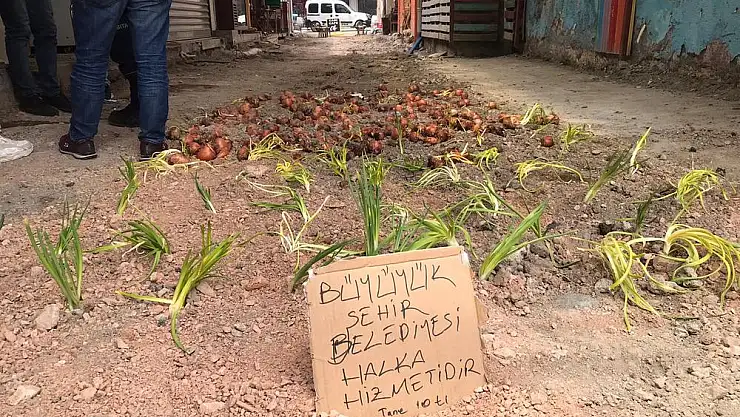 BÜYÜYÜK
SEHİR
BELEDİYESİ
HALKA
HİZMETİDİR
Tane 1.10 tl